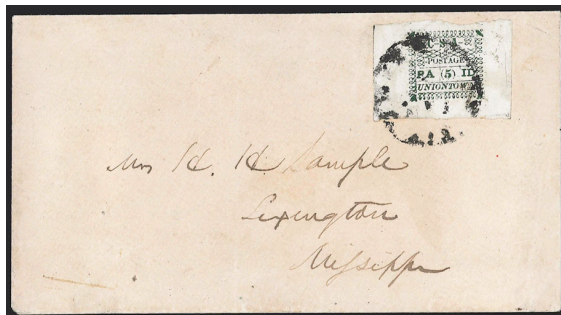 POSTAGE
PA (5) ID
UNIONTOWN
Mrs H. H. Sample
Lexington
Missippi